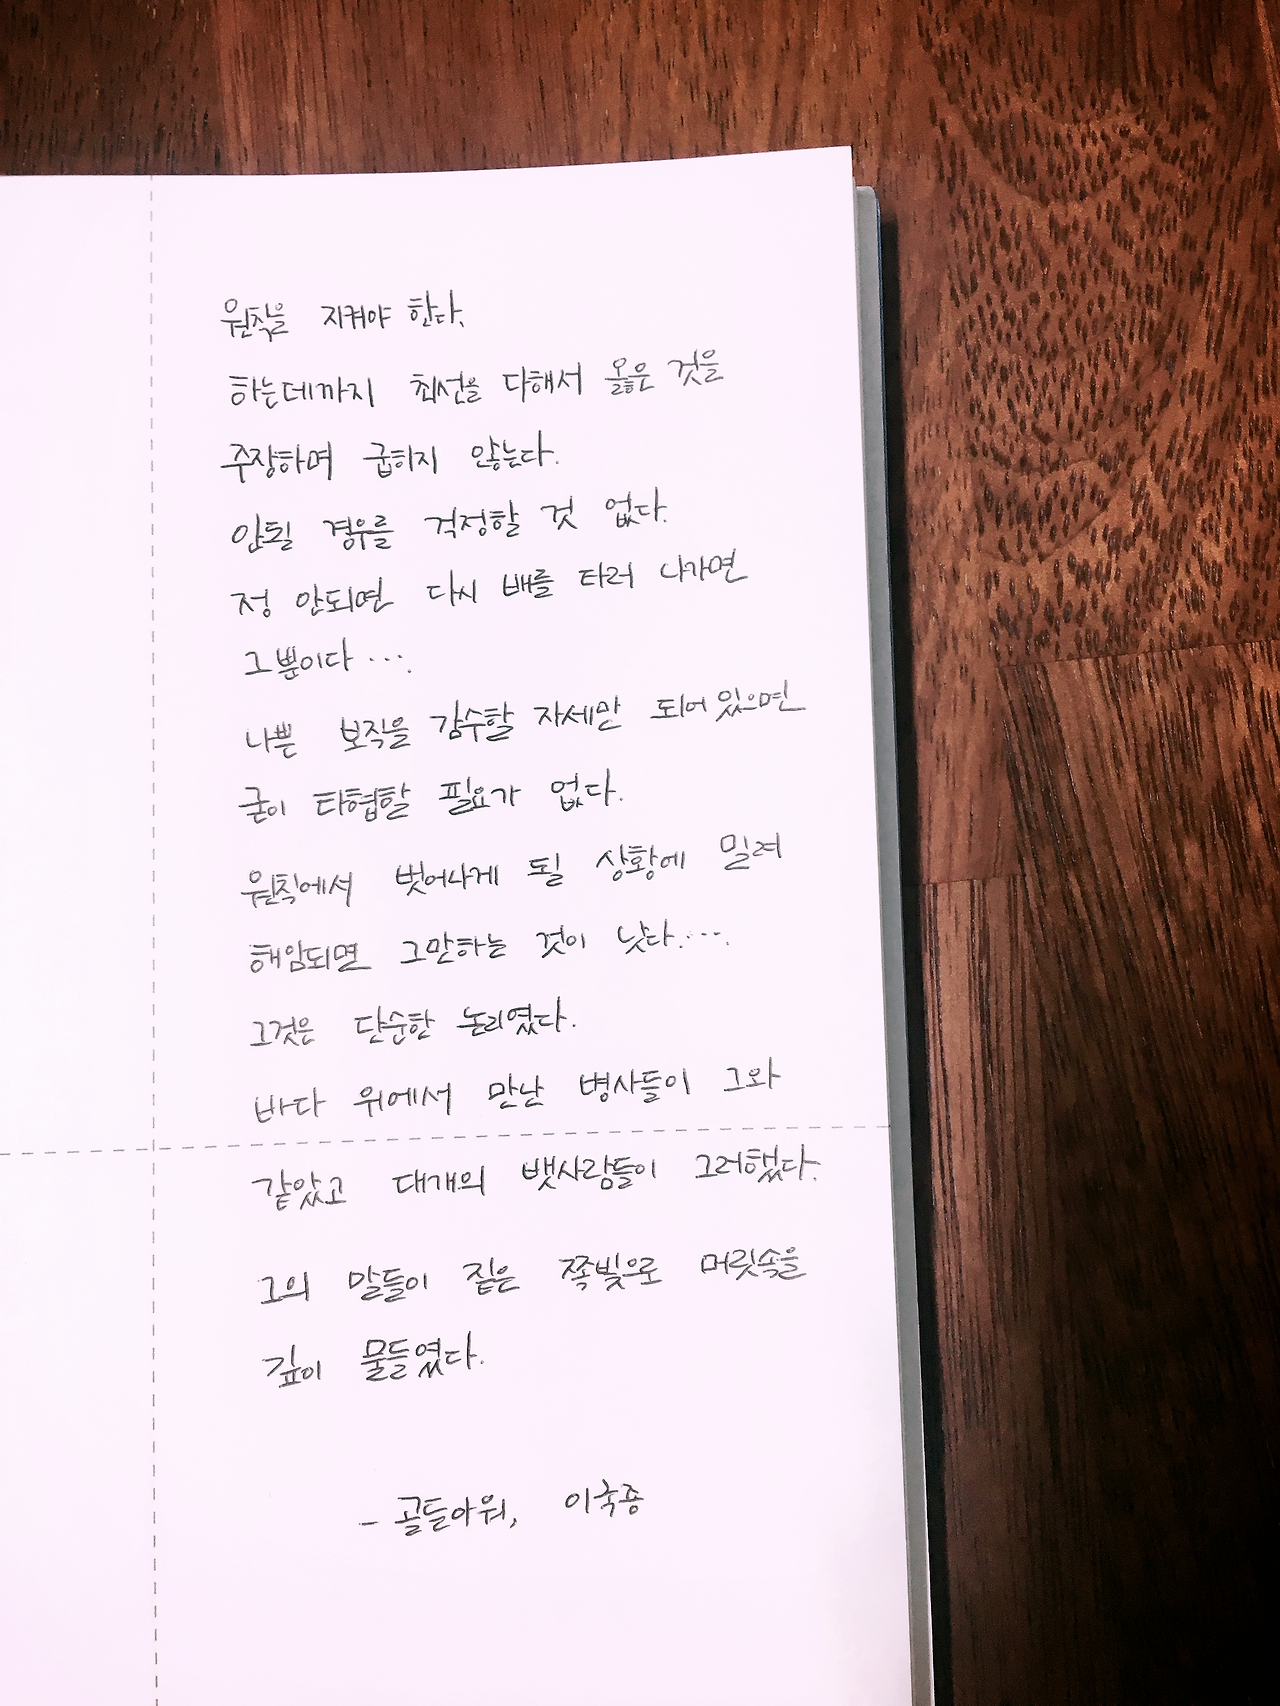 원칙을 지켜야 한다.
하는데까지 최선을 다해서 옳은 것을
주장하며 굽히지 않는다.
안될 경우를 걱정할 것 없다.
정 안되면 다시 배를 타러 나가면
그뿐이다 ....
나쁜 보직을 감수할 자세만 되어있으면
굳이 타협할 필요가 없다.
원칙에서 벗어나게 될 상황에 밀려
해임되면 그만하는 것이 낫다....
그것은 단순한 논리였다.
바다 위에서 만난 병사들이 그와
같았고 대개의 뱃사람들이 그러했다.
그의 말들이 짙은 쪽빛으로 머릿속을
깊이 물들였다.
- 골든아워, 이국종